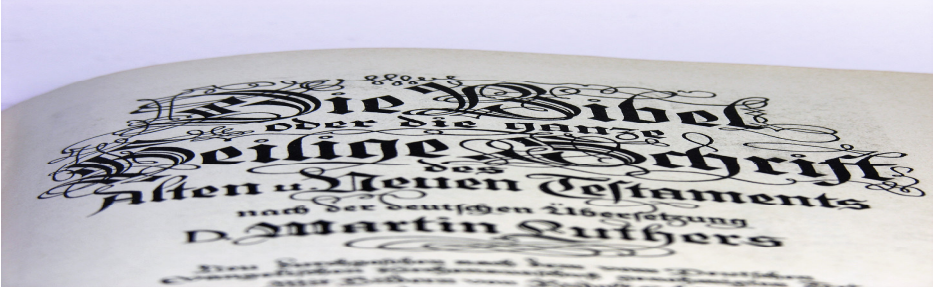 Die Bibel
oder die ganze
Heilige Schrift
des
Alten u. Neuen Testaments
nach der deutschen Übersetzung
D. Martin Luthers